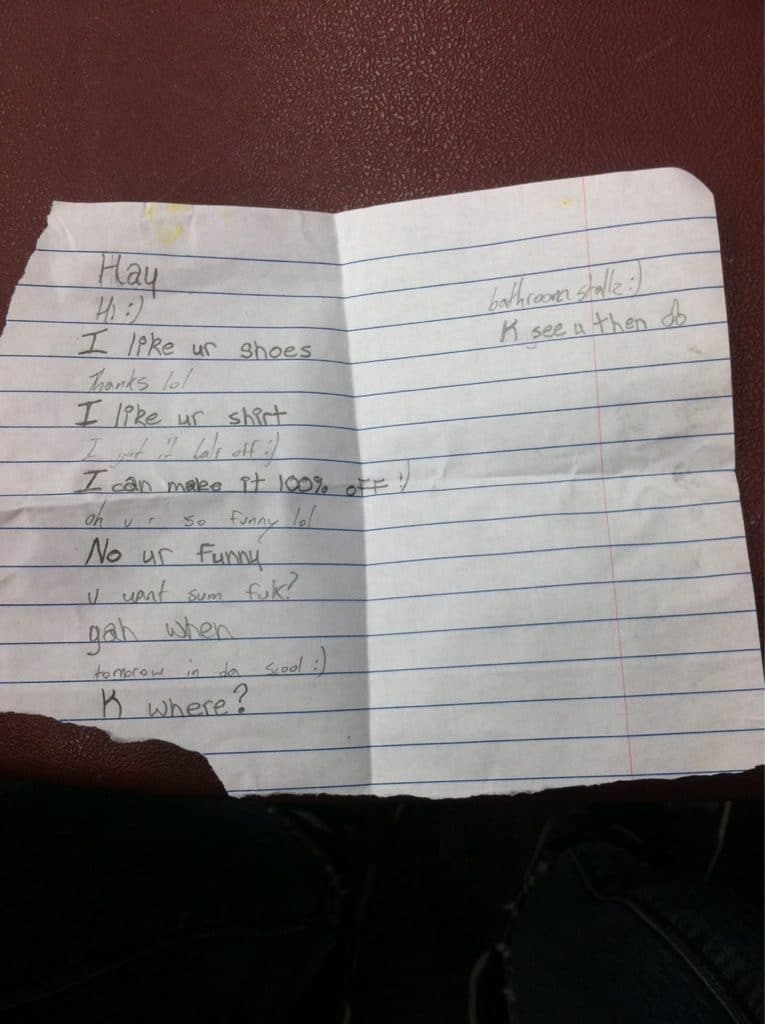 Hay
Hi :)
I like ur shoes
Thanks lol
I like ur shirt
I got it half off :)
I can make it 100% off :)
oh u r so funny lol
No ur funny
u want sum fuk?
gah when
tomorow in da scool :)
K where?
bathroom stallz :)
K see u then